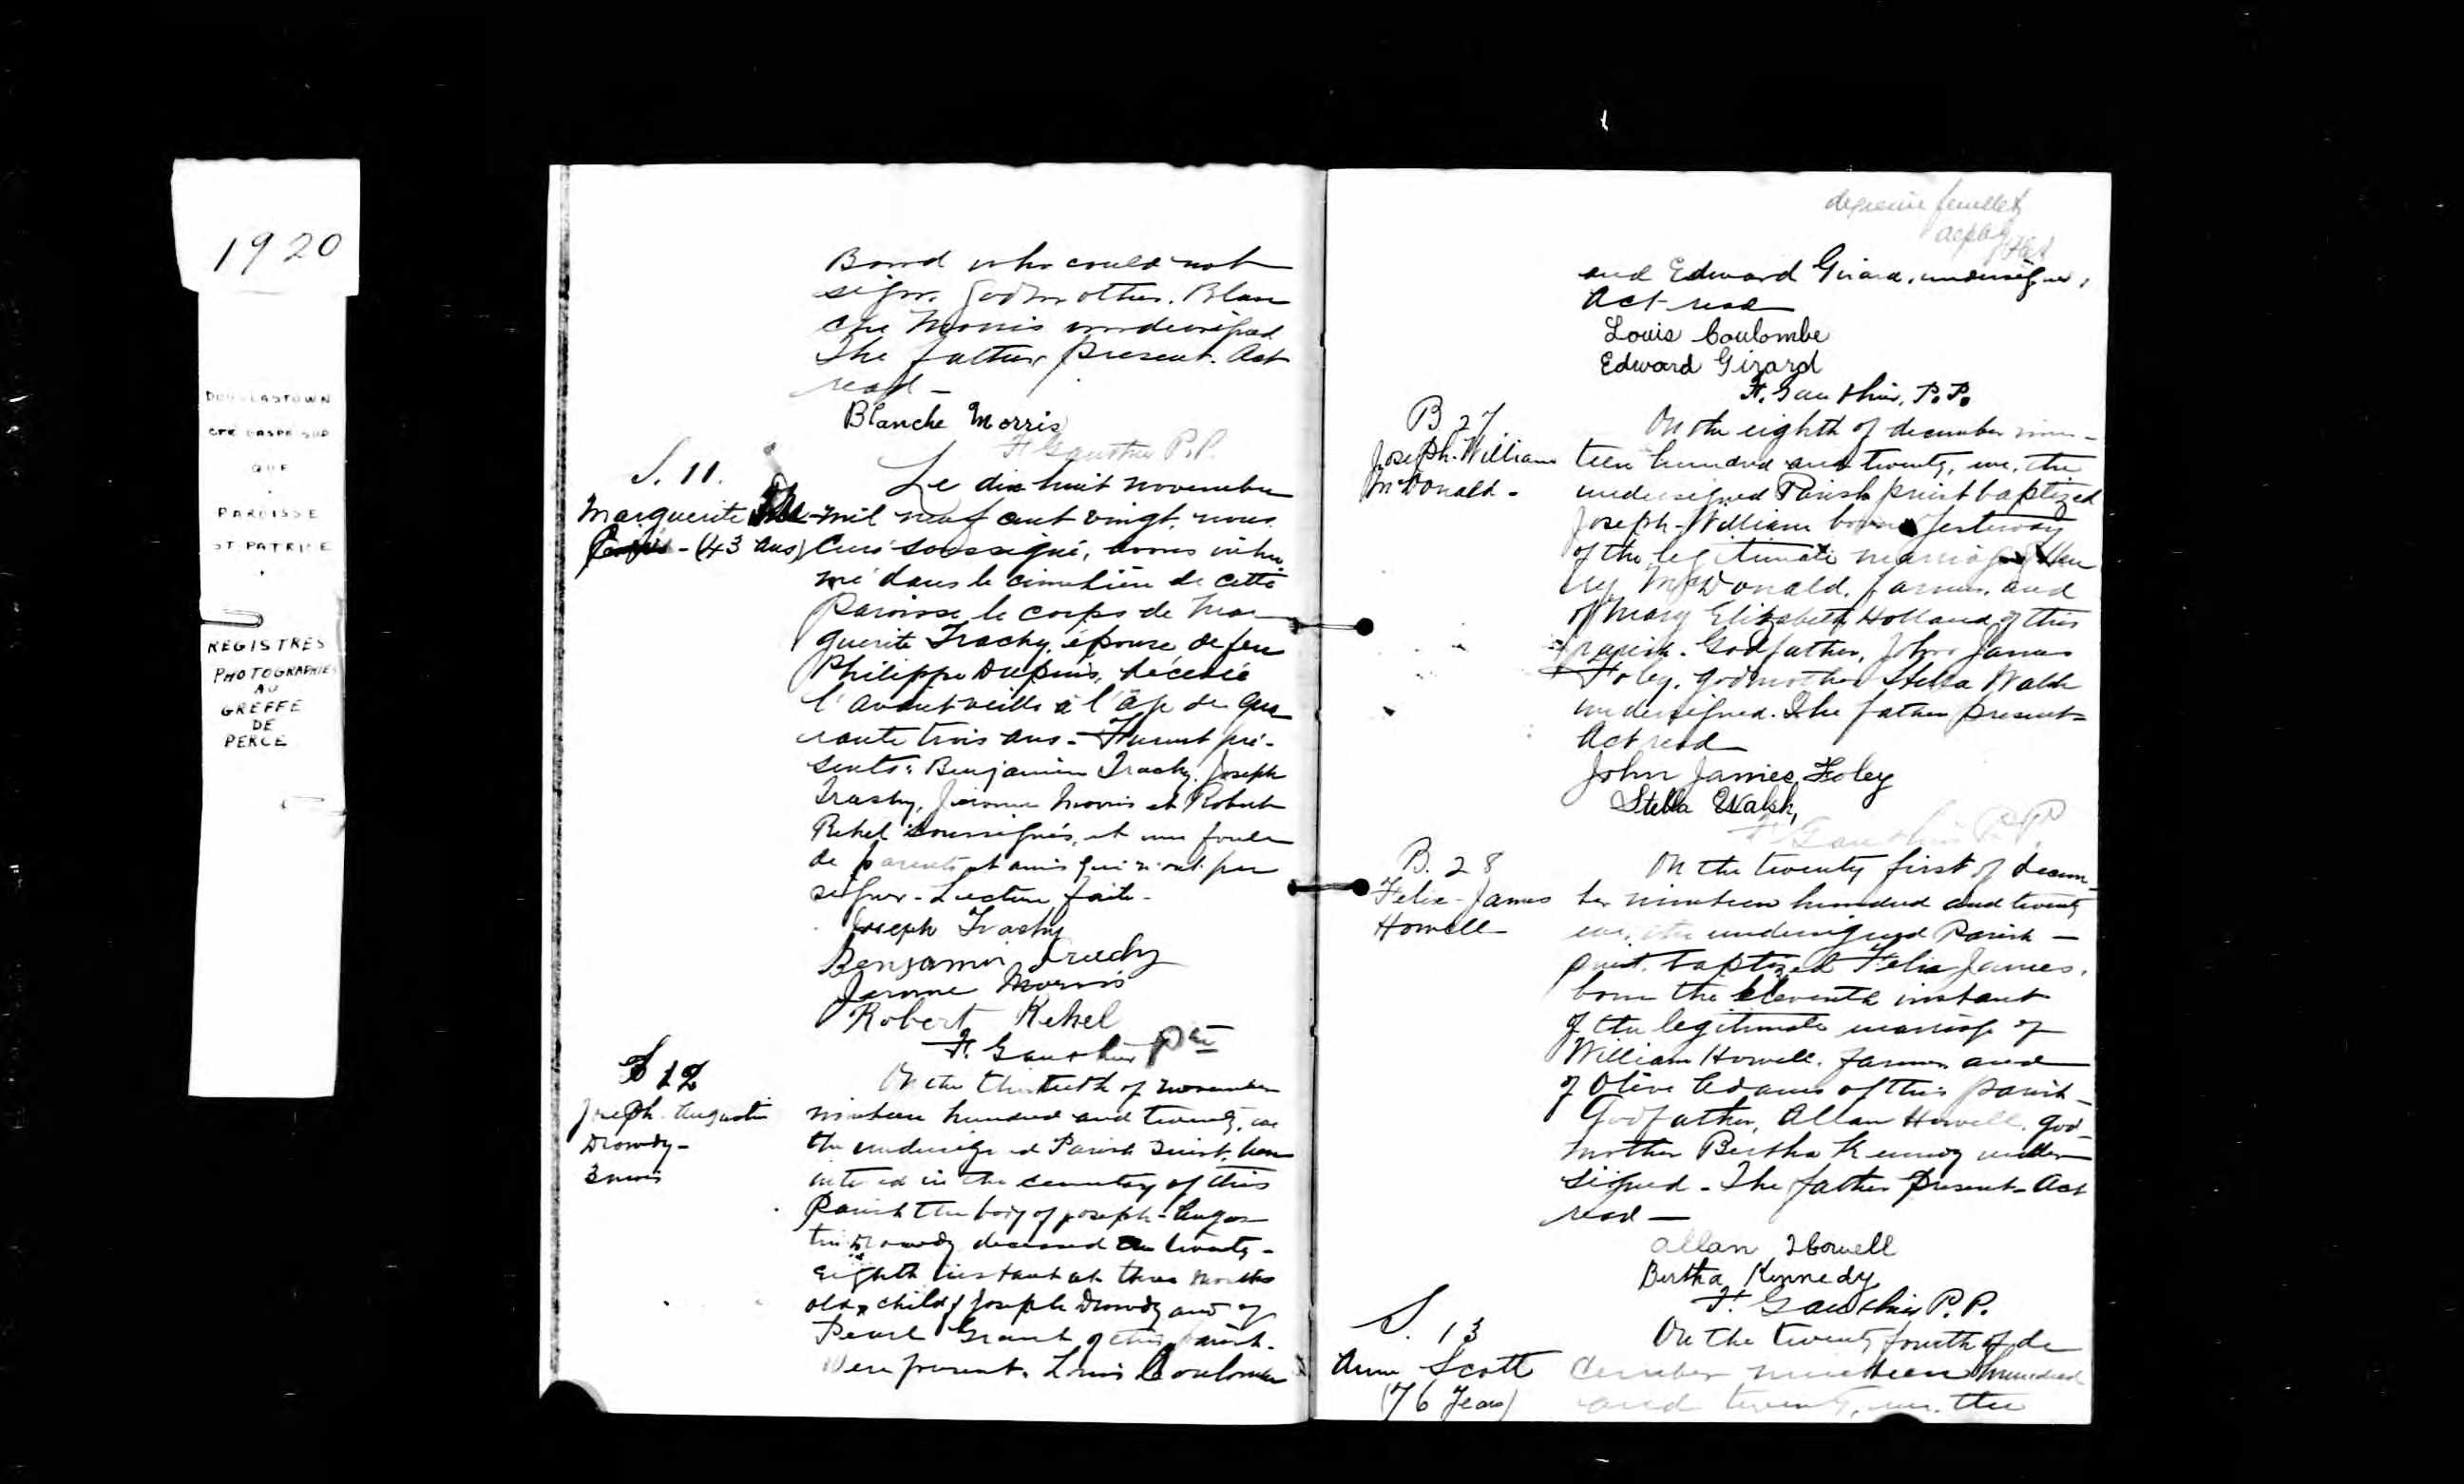 1920
DOUGLASTOWN
CTE GASPE SUD
QUE
PAROISSE
ST PATRICE
REGISTRES
PHOTOGRAPHIES
AU
GREFFE
DE
PERCE
Bond who could not
sign. Godmother. Blan
che Morris undersigned.
The father present. Act
read -
Blanche Morris
F. Gauthier P.P.
S. 11.
Marguerite
(43 ans)
Le dix huit novembre
mil neuf cent vingt, nous
Curé soussigné, avons inhu
mé dans le cimetière de cette
Paroisse le corps de Mar
guerite Trachy, épouse de feu
Philippe Dupuis, décédée
l'avant veille à l'âge de qua
rante trois ans - Furent pré-
sents: Benjamin Trachy, Joseph
Trachy, Jerome Morris et Robert
Rehel soussignés, et une foule
de parents et amis qui n'ont pu
signer - Lecture faite -
Joseph Trachy
Benjamin Trachy
Jerome Morris
Robert Rehel
F. Gauthier Ptre
S 12
Joseph Augustin
Drowdy -
3 mois
On the thirtieth of november
nineteen hundred and twenty, we
the undersigned Parish Priest, have
intered in the cemetery of this
Parish the body of Joseph-Augus
tin Drowdy deceased the twenty-
eighth instant at three months
old, child of Joseph Drowdy and of
Pearl Grant of this parish.
Were present. Louis Coulombe
and Edward Girard, undersigned,
Act read
Louis Coulombe
Edward Girard
F. Gauthier, P.P.
B 27
Joseph-William
McDonald -
On the eighth of december nine-
teen hundred and twenty, we, the
undersigned Parish priest baptized
Joseph-William born yesterday
of the legitimate marriage of Hen
ry McDonald, farmer, and
of Mary Elizabeth Holland of this
parish. Godfather, John James
Foley, godmother Stella Walsh
undersigned. The father present-
Act read
John James Foley
Stella Walsh,
F Gauthier P.P.
B. 28
Felix-James
Howell
On the twenty first of decem-
ber nineteen hundred and twenty
we, the undersigned Parish -
priest, baptized Felix James,
born the eleventh instant
of the legitimate marriage of
William Howell, farmer and
of Olive Adams of this parish -
Godfather, Allan Howell, god-
mother Bertha Kennedy under
signed - The father present - Act
read -
Allan Howell
Bertha Kennedy
F. Gauthier P.P.
S. 13
Anne Scott
(76 Years)
On the twenty fourth of de
cember nineteen hundred
and twenty, we, the